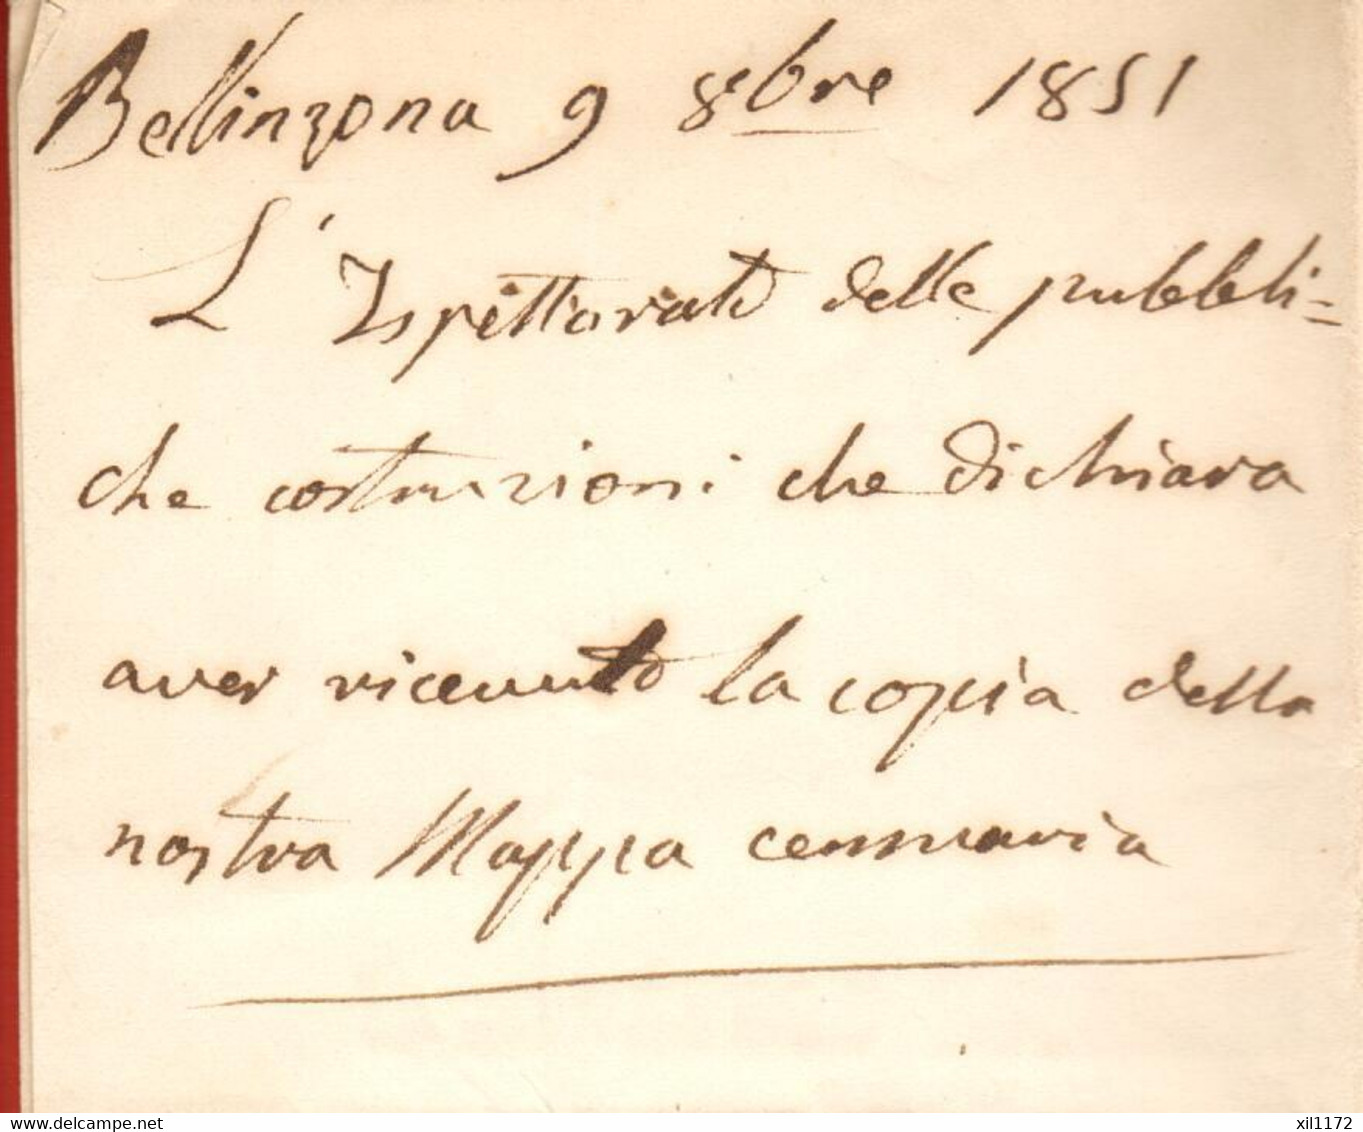 Bellinzona 9 8bre 1851
L'Ispettorato delle pubbli=
che costruzioni che dichiara
aver ricevuto la copia della
nostra Mappa censuaria
www.delcampe.net
xil1172